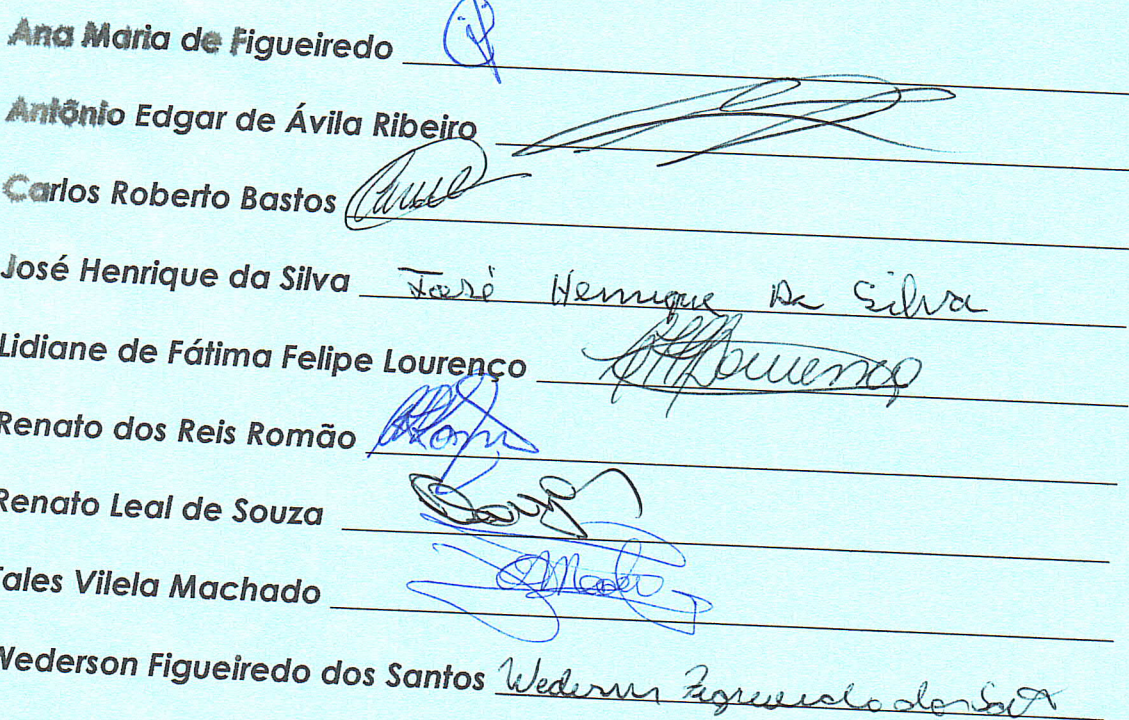 Ana Maria de Figueiredo
Antônio Edgar de Ávila Ribeiro
Carlos Roberto Bastos
José Henrique da Silva José Henrique Da Silva
Lidiane de Fátima Felipe Lourenço Lourenço
Renato dos Reis Romão
Renato Leal de Souza
Tales Vilela Machado
Wederson Figueiredo dos Santos Wederson Figueiredo dos